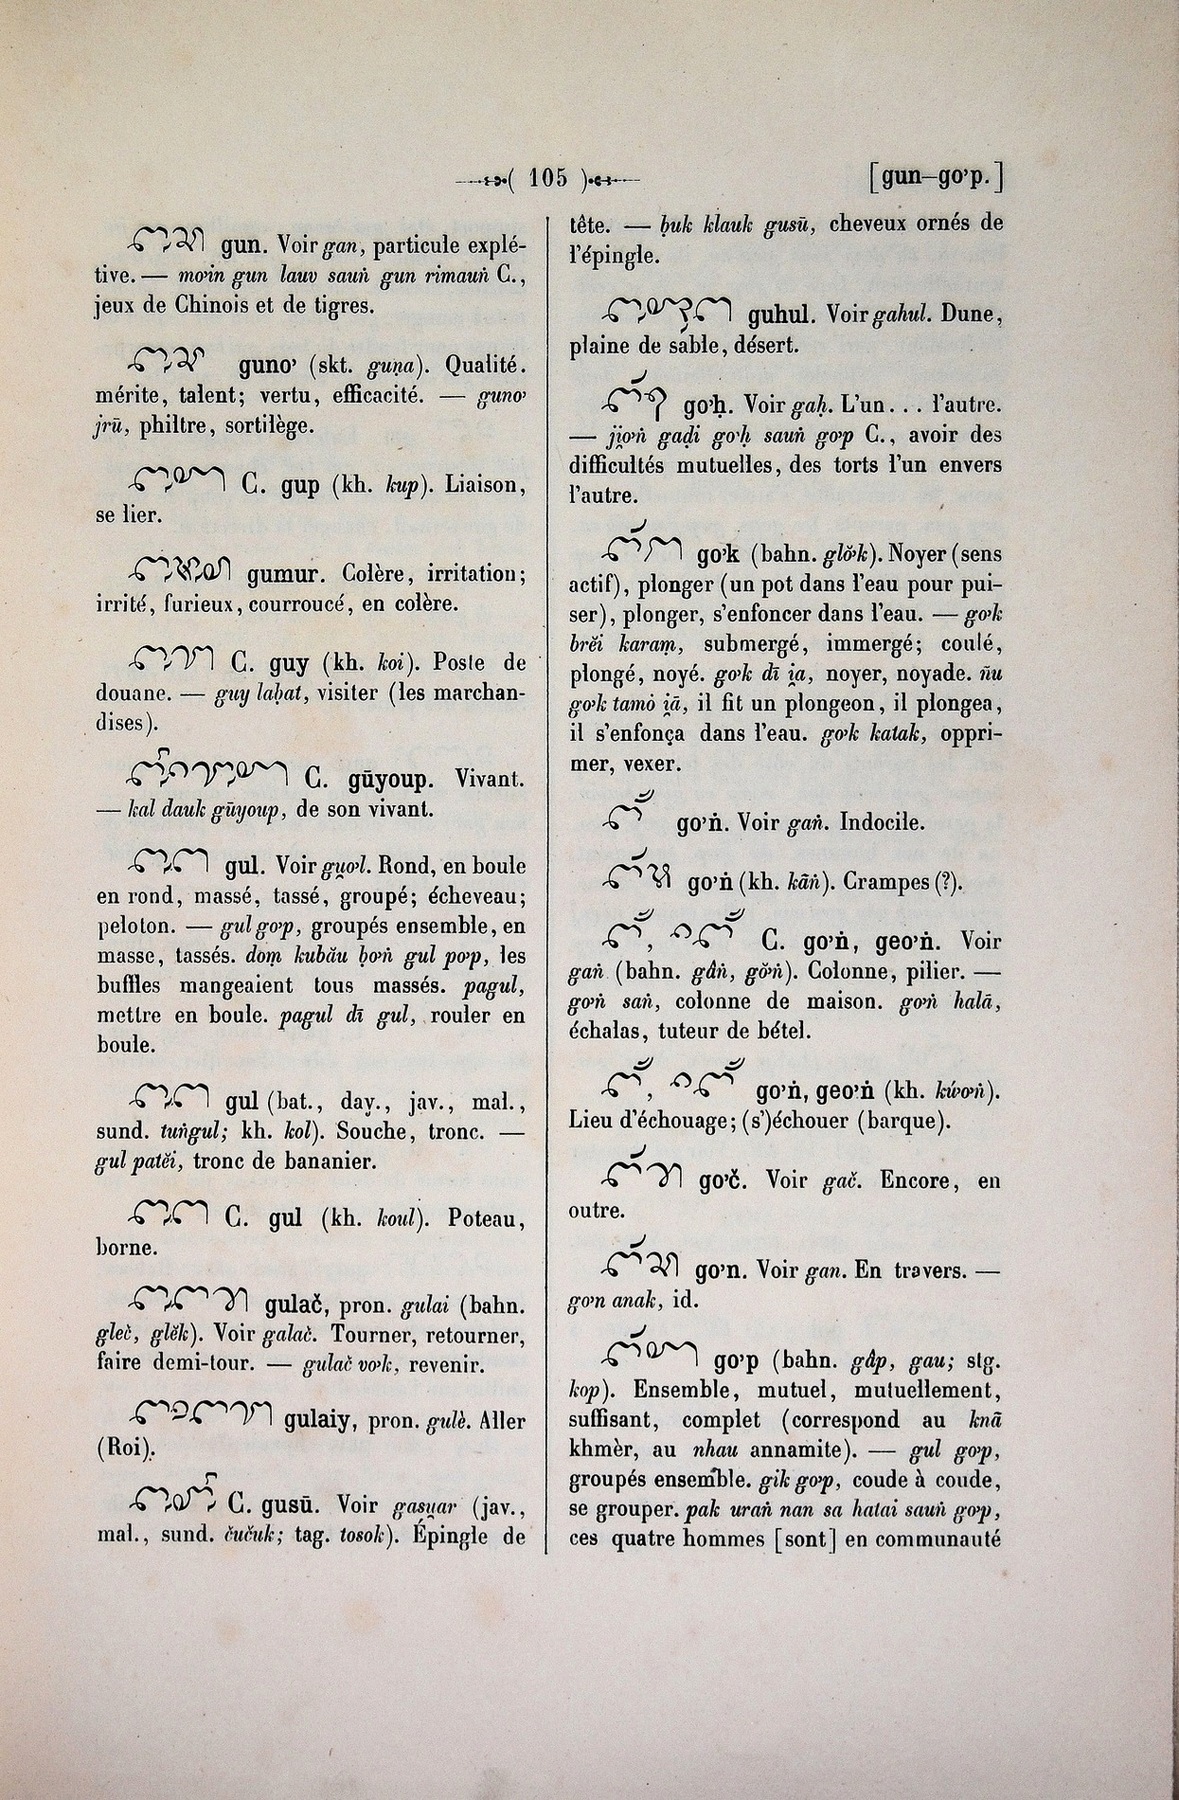 ( 105 )
[gun–go’p.]
gun. Voir gan, particule explé-
tive. — mo’in gun lauv sauṅ gun rimauṅ C.,
jeux de Chinois et de tigres.
guno’ (skt. guṇa). Qualité.
mérite, talent; vertu, efficacité. — guno’
jrū, philtre, sortilège.
C. gup (kh. kup). Liaison,
se lier.
gumur. Colère, irritation;
irrité, furieux, courroucé, en colère.
C. guy (kh. koi). Poste de
douane. — guy laḥat, visiter (les marchan-
dises).
C. gūyoup. Vivant.
— kal dauk gūyoup, de son vivant.
gul. Voir gu̯o’l. Rond, en boule
en rond, massé, tassé, groupé; écheveau;
peloton. — gul go’p, groupés ensemble, en
masse, tassés. doṃ kubău ḅo’ṅ gul po’p, les
buffles mangeaient tous massés. pagul,
mettre en boule. pagul dī gul, rouler en
boule.
gul (bat., day., jav., mal.,
sund. tuṅgul; kh. kol). Souche, tronc. —
gul patĕi, tronc de bananier.
C. gul (kh. koul). Poteau,
borne.
gulač, pron. gulai (bahn.
gleč, glĕk). Voir galač. Tourner, retourner,
faire demi-tour. — gulač vo’k, revenir.
gulaiy, pron. gulè. Aller
(Roi).
C. gusū. Voir gasu̯ar (jav.,
mal., sund. čučuk; tag. tosok). Épingle de
tête. — ḅuk klauk gusū, cheveux ornés de
l’épingle.
guhul. Voir gahul. Dune,
plaine de sable, désert.
go’ḥ. Voir gaḥ. L’un... l’autre.
— ji̯o’ṅ gaḍi go’ḥ sauṅ go’p C., avoir des
difficultés mutuelles, des torts l’un envers
l’autre.
go’k (bahn. glŏ’k). Noyer (sens
actif), plonger (un pot dans l’eau pour pui-
ser), plonger, s’enfoncer dans l’eau. — go’k
brĕi karaṃ, submergé, immergé; coulé,
plongé, noyé. go’k dī i̯a, noyer, noyade. ñu
go’k tamȯ i̯ā, il fit un plongeon, il plongea,
il s’enfonça dans l’eau. go’k katak, oppri-
mer, vexer.
go’ṅ. Voir gaṅ. Indocile.
go’ṅ (kh. kāṅ). Crampes (?).
C. go’ṅ, geo’ṅ. Voir
gaṅ (bahn. gâṅ, gŏ’ṅ). Colonne, pilier. —
go’ṅ saṅ, colonne de maison. go’ṅ halā,
échalas, tuteur de bétel.
go’ṅ, geo’ṅ (kh. kẃo’ṅ).
Lieu d’échouage; (s’)échouer (barque).
go’č. Voir gač. Encore, en
outre.
go’n. Voir gan. En travers. —
go’n anak, id.
go’p (bahn. gâp, gau; stg.
kop). Ensemble, mutuel, mutuellement,
suffisant, complet (correspond au knā
khmèr, au nhau annamite). — gul go’p,
groupés ensemble. gik go’p, coude à coude,
se grouper. pak uraṅ nan sa hatai sauṅ go’p,
ces quatre hommes [sont] en communauté